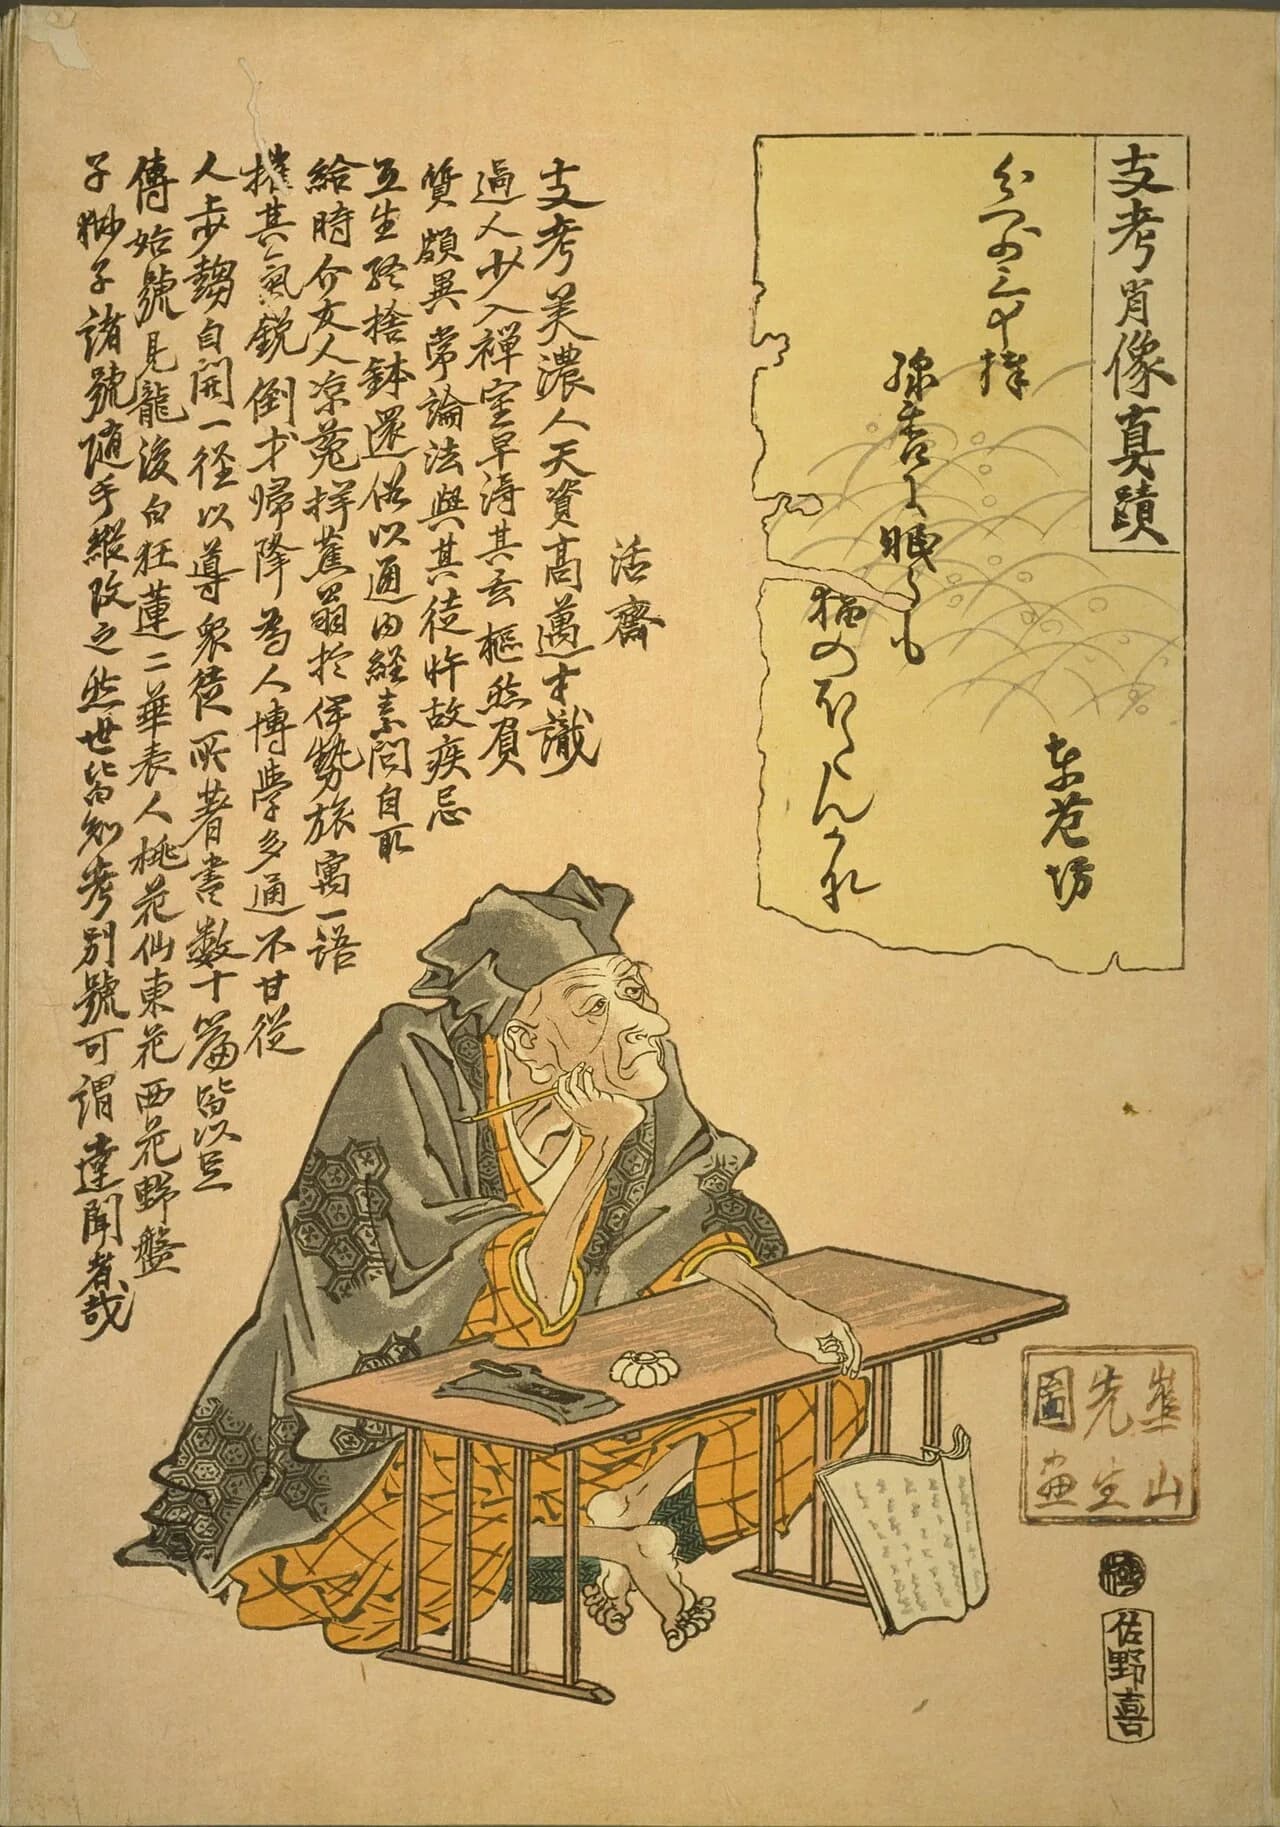 支考肖像真蹟
眠る
猫の
東花坊
活齋
支考美濃人天資高邁才識
過人少入禅室早得其玄樞然負
質頗異常論法與其徒忤故疾忌
互生終捨鉢還俗以通内経素問自取
給時介女人凉菟拝蕉翁於伊勢旅寓一語
摧其氣鋭倒才歸降為人博學多通不甘從
人歩趨自開一径以導衆徒所著書数十篇皆以
傳始號見龍後白狂蓮二華表人桃花仙東花西花野盤
子獅子諸號随手縦改之然世皆知考別號可謂達聞者哉
崋山
先生
圖画
極
佐野喜